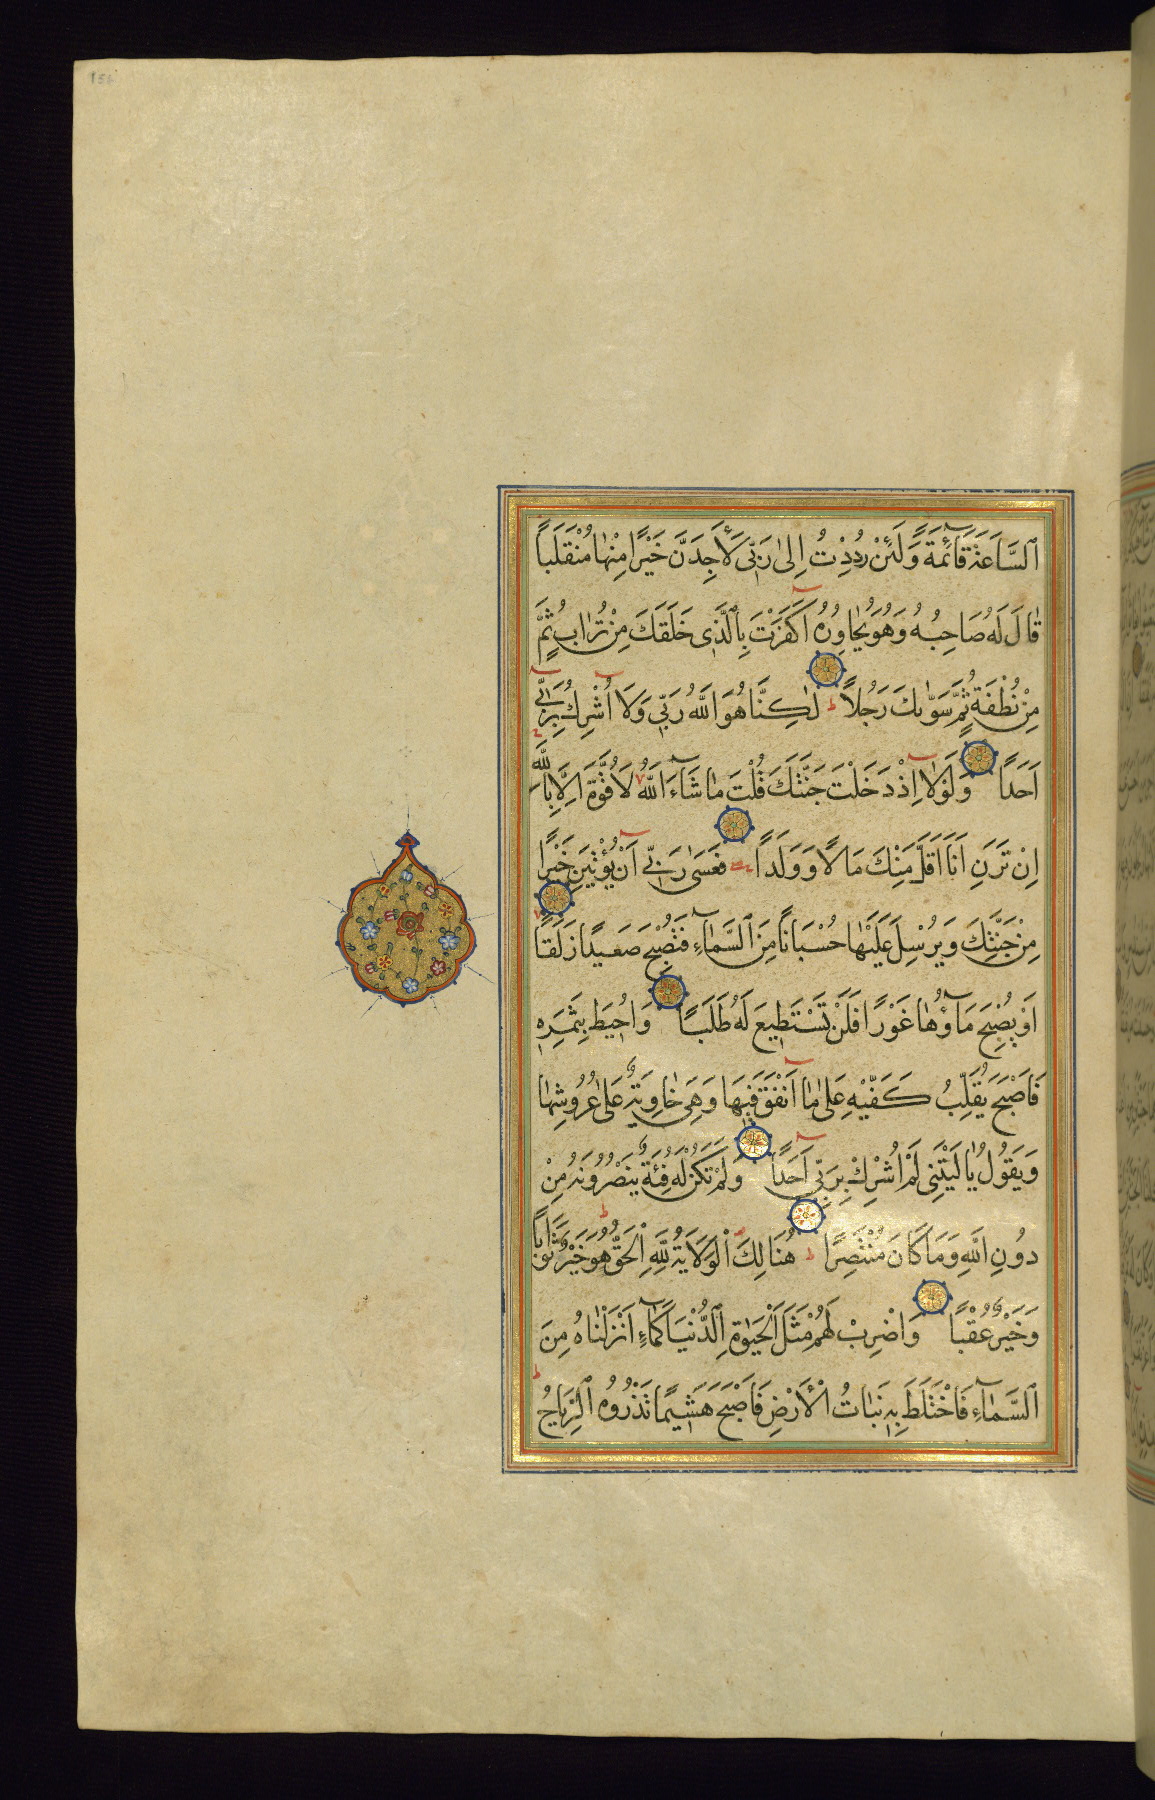 السَّاعَةَ قَائِمَةً وَلَئِنْ رُدِدْتُ اِلٰى رَبّٖى لَاَجِدَنَّ خَيْرًا مِنْهَا مُنْقَلَبًا
قَالَ لَهُ صَاحِبُهُ وَهُوَ يُحَاوِرُهُ اَكَفَرْتَ بِالَّذٖى خَلَقَكَ مِنْ تُرَابٍ ثُمَّ
مِنْ نُطْفَةٍ ثُمَّ سَوّٰيكَ رَجُلًا لٰكِنَّا هُوَ اللّٰهُ رَبّٖى وَلَا اُشْرِكُ بِرَبّٖى
اَحَدًا وَلَوْلَا اِذْ دَخَلْتَ جَنَّتَكَ قُلْتَ مَا شَاءَ اللّٰهُ لَا قُوَّةَ اِلَّا بِاللّٰهِ
اِنْ تَرَنِ اَنَا اَقَلَّ مِنْكَ مَالًا وَوَلَدًا فَعَسٰى رَبّٖى اَنْ يُؤْتِيَنِ خَيْرًا
مِنْ جَنَّتِكَ وَيُرْسِلَ عَلَيْهَا حُسْبَانًا مِنَ السَّمَاءِ فَتُصْبِحَ صَعِيدًا زَلَقًا
اَوْ يُصْبِحَ مَاؤُهَا غَوْرًا فَلَنْ تَسْتَطٖيعَ لَهُ طَلَبًا وَاُحٖيطَ بِثَمَرِهٖ
فَاَصْبَحَ يُقَلِّبُ كَفَّيْهِ عَلٰى مَا اَنْفَقَ فٖيهَا وَهِىَ خَاوِيَةٌ عَلٰى عُرُوشِهَا
وَيَقُولُ يَا لَيْتَنٖى لَمْ اُشْرِكْ بِرَبّٖى اَحَدًا وَلَمْ تَكُنْ لَهُ فِئَةٌ يَنْصُرُونَهُ مِنْ
دُونِ اللّٰهِ وَمَا كَانَ مُنْتَصِرًا هُنَالِكَ الْوَلَايَةُ لِلّٰهِ الْحَقِّ هُوَ خَيْرٌ ثَوَابًا
وَخَيْرٌ عُقْبًا وَاضْرِبْ لَهُمْ مَثَلَ الْحَيٰوةِ الدُّنْيَا كَمَاءٍ اَنْزَلْنَاهُ مِنَ
السَّمَاءِ فَاخْتَلَطَ بِهٖ نَبَاتُ الْاَرْضِ فَاَصْبَحَ هَشٖيمًا تَذْرُوهُ الرِّيَاحُ